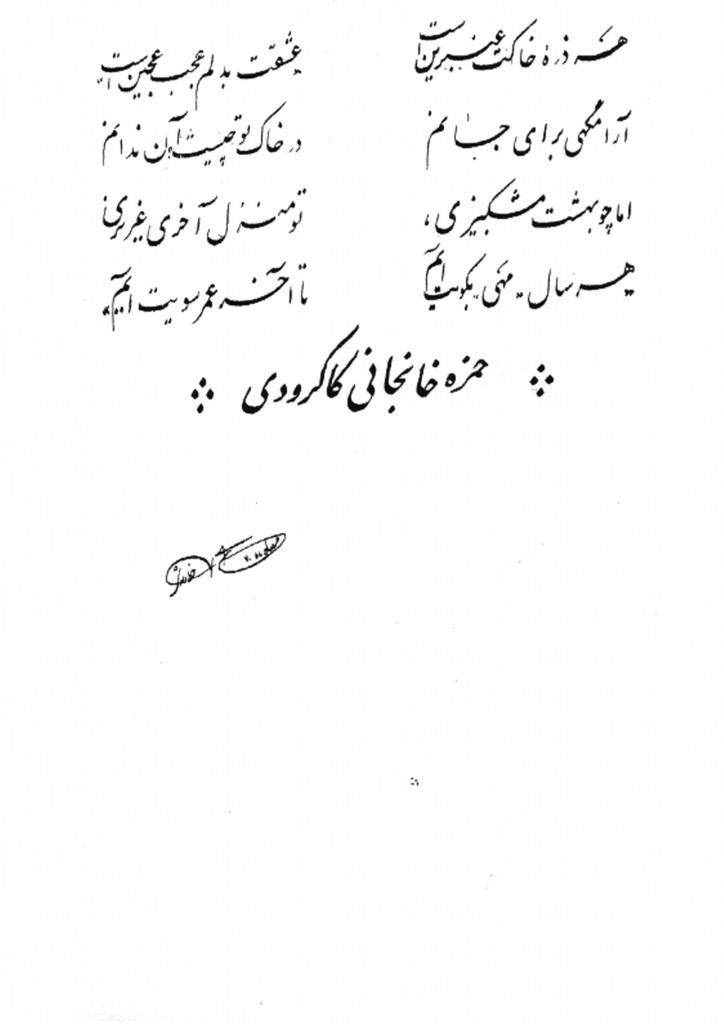 هر ذره خاکت عنبرین است عشقت بدلم عجب عجین است
آرامگهی برای جانم در خاک تو چیست آن ندانم
اما چو بهشت مشکبیزی، تو منزل آخری عزیزی
هر سال "مهی" بکویت آیم تا آخر عمر سویت آیم"
حمزه خانجانی کاکرودی